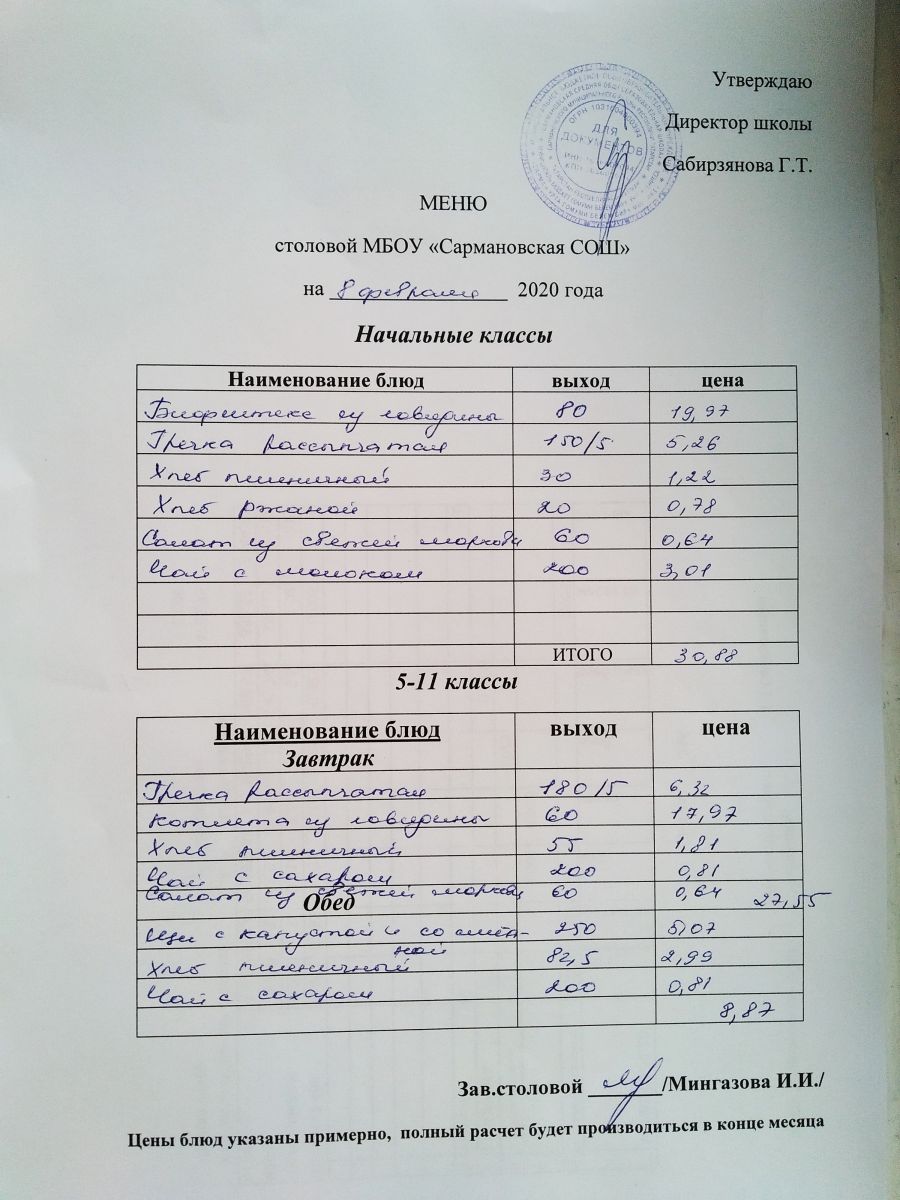 Утверждаю
Директор школы
Сабирзянова Г.Т.
ДЛЯ
ДОКУМЕНТОВ
МЕНЮ
столовой МБОУ «Сармановская СОШ»
на 8 февраля 2020 года
Начальные классы
Наименование блюд выход цена
Бифштекс из говядины 80 19,97
Гречка рассыпчатая 150/5 5,26
Хлеб пшеничный 30 1,22
Хлеб ржаной 20 0,78
Салат из свежей моркови 60 0,64
Чай с молоком 200 3,01
ИТОГО 30,88
5-11 классы
Наименование блюд выход цена
Завтрак
Гречка рассыпчатая 180/5 6,32
Котлета из говядины 60 17,97
Хлеб пшеничный 55 1,81
Чай с сахаром 200 0,81
Салат из свежей моркови 60 0,64 27,55
Обед
Щи с капустой и со смета- 250 5,07
ной
Хлеб пшеничный 82,5 2,99
Чай с сахаром 200 0,81
8,87
Зав.столовой /Мингазова И.И./
Цены блюд указаны примерно, полный расчет будет производиться в конце месяца